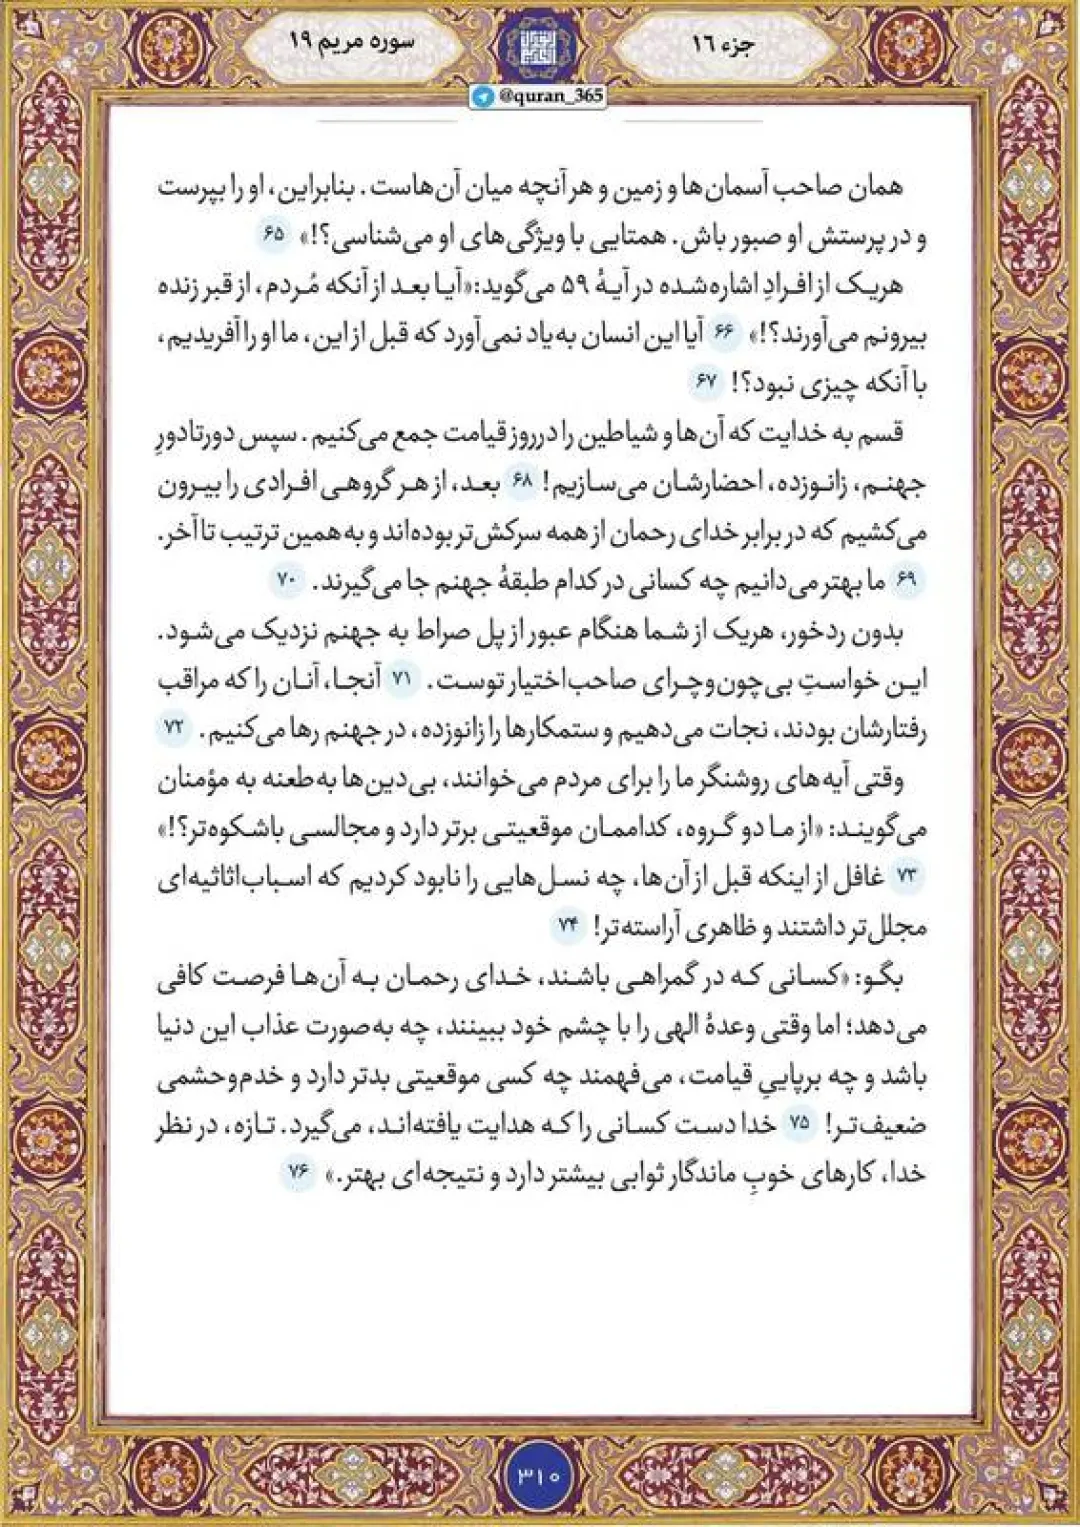 جزء ۱۶
سوره مریم ۱۹
@quran_365
همان صاحب آسمان‌ها و زمین و هر آنچه میان آن‌هاست. بنابراین، او را بپرست
و در پرستش او صبور باش. همتایی با ویژگی‌های او می‌شناسی؟!» ۶۵
هریک از افرادِ اشاره‌شده در آیهٔ ۵۹ می‌گوید:«آیا بعد از آنکه مُردم، از قبر زنده
بیرونم می‌آورند؟!» ۶۶ آیا این انسان به‌یاد نمی‌آورد که قبل از این، ما او را آفریدیم،
با آنکه چیزی نبود؟! ۶۷
قسم به خدایت که آن‌ها و شیاطین را درروز قیامت جمع می‌کنیم. سپس دورتادورِ
جهنم، زانوزده، احضارشان می‌سازیم! ۶۸ بعد، از هر گروهی افرادی را بیرون
می‌کشیم که در برابر خدای رحمان از همه سرکش‌تر بوده‌اند و به همین ترتیب تا آخر.
۶۹ ما بهتر می‌دانیم چه کسانی در کدام طبقهٔ جهنم جا می‌گیرند. ۷۰
بدون ردخور، هریک از شما هنگام عبور از پل صراط به جهنم نزدیک می‌شود.
این خواستِ بی‌چون‌وچرای صاحب‌اختیار توست. ۷۱ آنجا، آنان را که مراقب
رفتارشان بودند، نجات می‌دهیم و ستمکارها را زانوزده، در جهنم رها می‌کنیم. ۷۲
وقتی آیه‌های روشنگر ما را برای مردم می‌خوانند، بی‌دین‌ها به‌طعنه به مؤمنان
می‌گویند: «از ما دو گروه، کداممان موقعیتی برتر دارد و مجالسی باشکوه‌تر؟!»
۷۳ غافل از اینکه قبل از آن‌ها، چه نسل‌هایی را نابود کردیم که اسباب‌اثاثیه‌ای
مجلل‌تر داشتند و ظاهری آراسته‌تر! ۷۴
بگو: «کسانی که در گمراهی باشند، خدای رحمان به آن‌ها فرصت کافی
می‌دهد؛ اما وقتی وعدهٔ الهی را با چشم خود ببینند، چه به‌صورت عذاب این دنیا
باشد و چه برپاییِ قیامت، می‌فهمند چه کسی موقعیتی بدتر دارد و خدم‌وحشمی
ضعیف‌تر! ۷۵ خدا دست کسانی را که هدایت یافته‌اند، می‌گیرد. تازه، در نظر
خدا، کارهای خوبِ ماندگار ثوابی بیشتر دارد و نتیجه‌ای بهتر.» ۷۶
۳۱۰